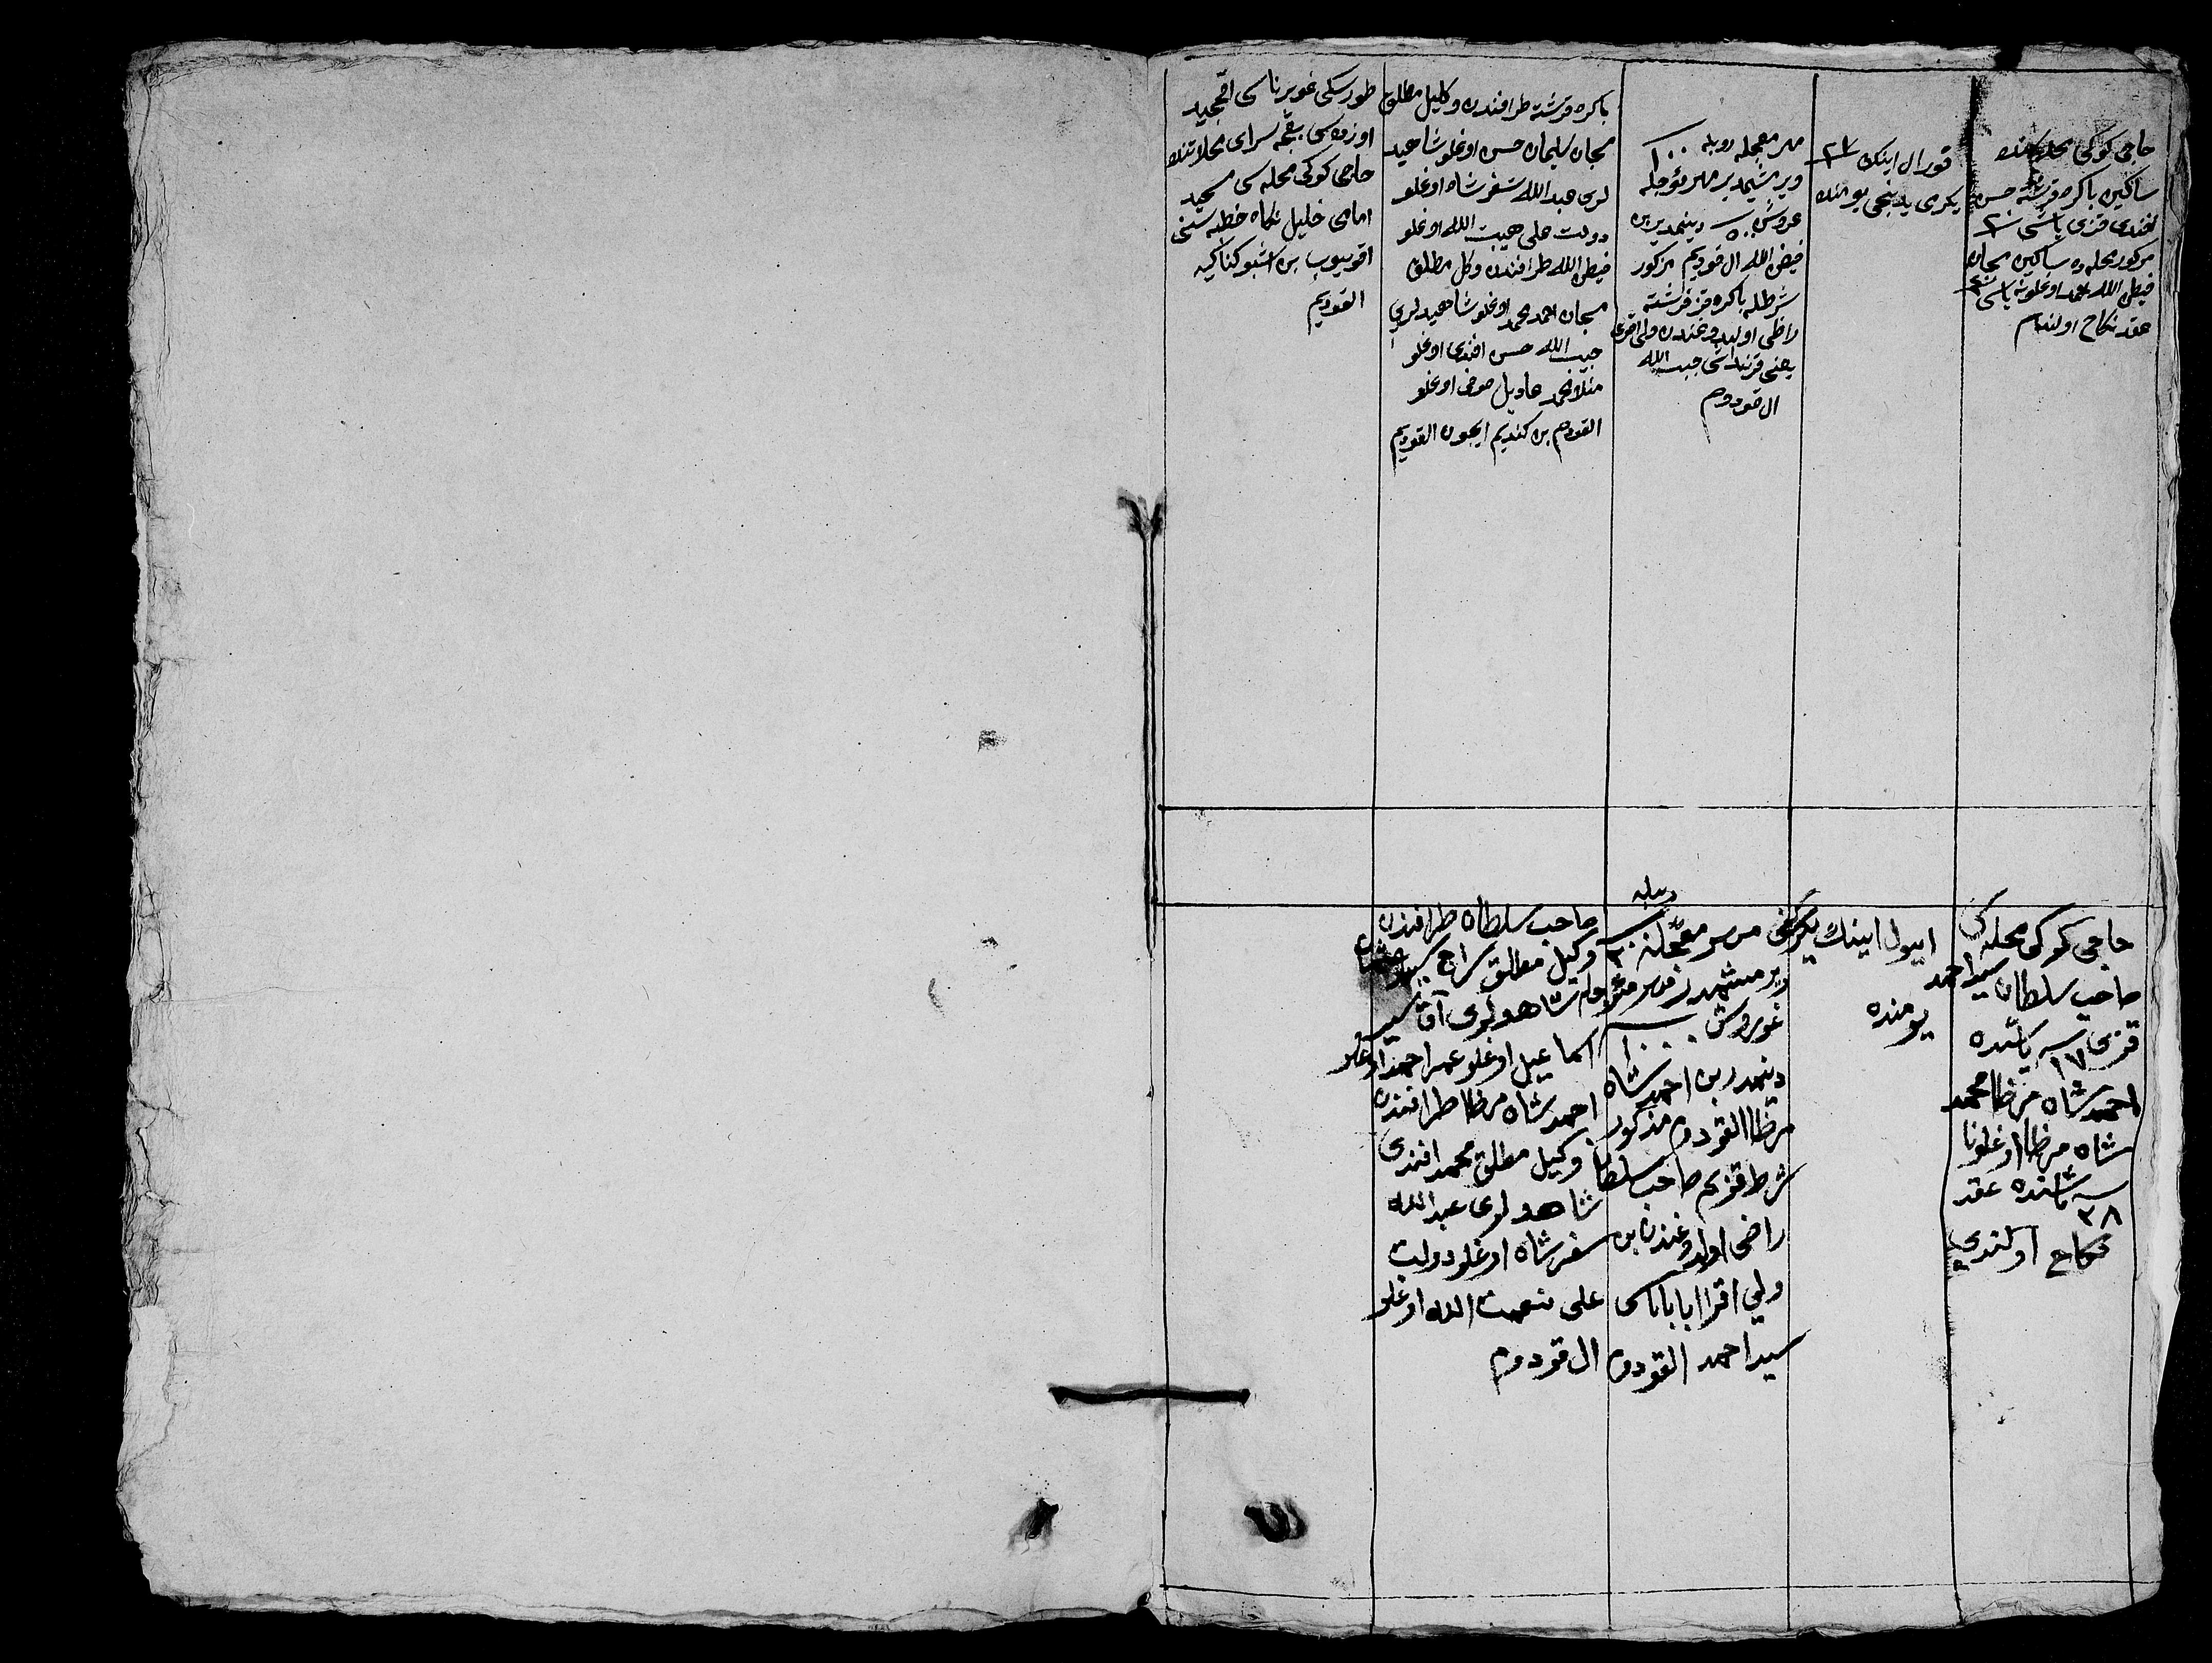 حاجی كوكی محله سنده
ساكین باكره فرشته حسن
افندی قزی یاشی ٢٠
مزكور محله ده ساكین مجان
فیض الله محمد اوغلونه یاشی
عقد نكاح اولندی
قورال اینك ٢١
یكرمی یدینجی یومنده
مهر معجله روبله ١٠٠
ویرمشیمدیر مهر مؤجله
غروش ٥٠ دینمدیر بن
فیض الله ال قودیم مزكور
شرطله باكره قز فرشته
راضی اولدوغندن ولی اقری
یعنی قرنداشی حبیب الله
ال قودوم
باكره فرشته طرافندن وكلیل مطلق
مجان سلیمان حسن اوغلو شاهید
لری عبدالله سفرشاه اوغلو
دولت علی حبیب الله اوغلو
فیض الله طرافندن وكل مطلق
مجان احمد محمد اوغلو شاهیدلری
حبیب الله حسن افندی اوغلو
منلا محمد صوفی اوغلو
القودم بن كندیم ایچون القودیم
طورسكی غوبرناسی
اوزه سی بقچه سرای محلاتنده
حاجی كوكی محله سی مسجید
امامی خلیل نكاه خطبه سنی
اقویوب بن اشبو كناكیه
القودیم
حاجی كوكی محله سی
صاحب سلطان سید احمد
قزی ١٧ یاشنده
احمد شاه مرظا محمد
شاه مرظا اوغلونا
٢٨ یاشنده عقد
نكاح اولندی
اییول اینك
یومنده
روبله
مهر معجلنه ٢٠
ویرمشیمدر
غوروش ١٠٠٠
دینمدر بن احمد شاه
مرظا القودم مذكور
شرط قزیم صاحب سلطان
راضی اولدوغندن بن
ولی اقرا باباسی
سید احمد القودوم
صاحب سلطان طرافندن
وكیل مطلق سراج
شاهدلری آقا سید
اسماعیل اوغلو عمر احمد اوغلو
احمد شاه مرظا طرافندن
وكیل مطلق محمد افندی
شاهدلری عبدالله
سفرشاه اوغلو دولت
علی نعمت الله اوغلو
ال قودوم